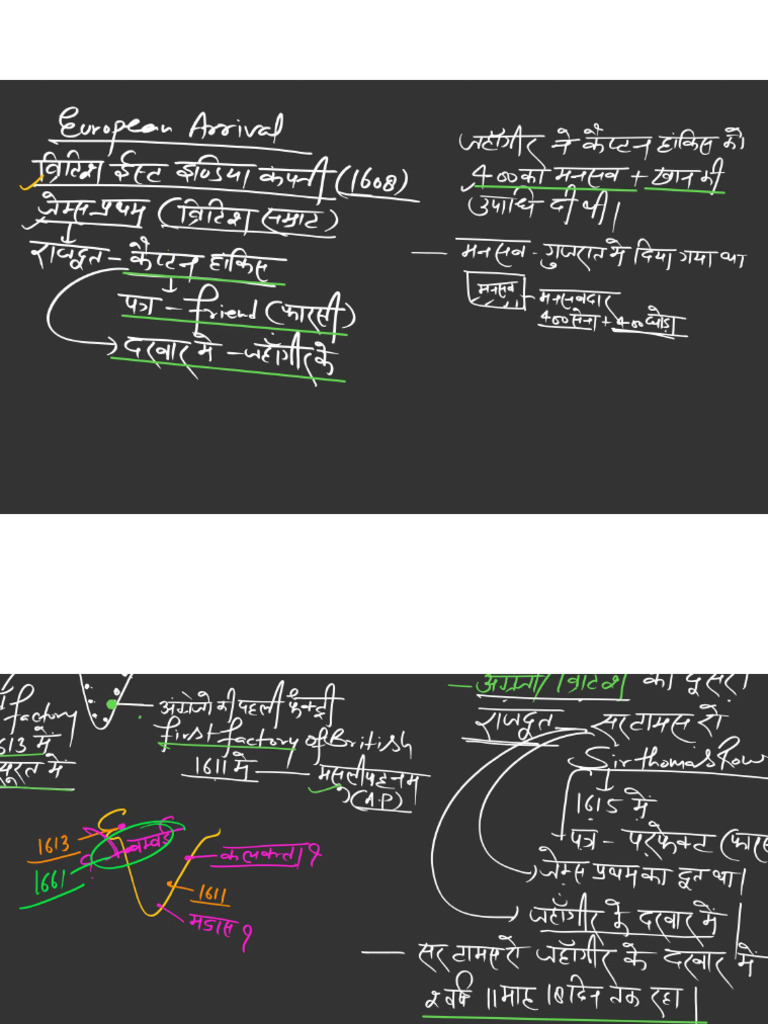 European Arrival
ब्रिटिश ईस्ट इण्डिया कंपनी (1608)
जेम्स प्रथम (ब्रिटिश सम्राट)
राजदूत - कैप्टन हॉकिंस
पत्र - friend (फारसी)
दरबार में - जहाँगीर के
जहाँगीर ने कैप्टन हॉकिंस को
400 का मनसब + खान की
उपाधि दी थी।
मनसब - गुजरात में दिया गया था
मनसब - मनसबदार
400 सेना + 400 घोड़ा
factory
1613 में
सूरत में
अंग्रेजो की पहली फैक्ट्री
First factory of British
1611 में — मसलीपट्टनम
(A.P)
1613
बम्बई
1661
कलकत्ता?
1611
मद्रास?
अंग्रेजों / ब्रिटिश का दूसरा
राजदूत - सर टामस रो
Sir thomas Row
1615 में
पत्र - परफेक्ट
जेम्स प्रथम का दूत था।
जहाँगीर के दरबार में
सर टामस रो जहाँगीर के दरबार में
2 वर्ष 11 माह 18 दिन तक रहा।